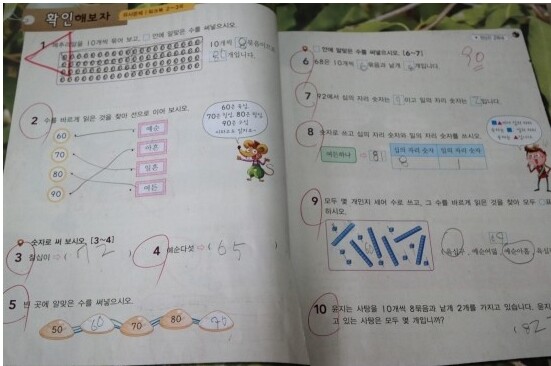 확인해보자
1 메추리알을 10개씩 묶어 보고, □ 안에 알맞은 수를 써넣으시오.
10개씩 8묶음이므로
80개입니다.
2 수를 바르게 읽은 것을 찾아 선으로 이어 보시오.
60 예순
70 아흔
80 일흔
90 여든
60은 육십,
70은 칠십, 80은 팔십,
90은 구십
숫자로 써 보시오. [3~4]
3 칠십이 ⇨ ( 72 )
4 예순다섯 ⇨ ( 65
5 빈 곳에 알맞은 수를 써넣으시오.
50 60 70 80 90
□ 안에 알맞은 수를 써넣으시오. [6~7]
90
6 68은 10개씩 6묶음과 낱개 8개입니다.
7 92에서 십의 자리 숫자는 9이고 일의 자리 숫자는 2입니다.
8 숫자로 쓰고 십의 자리 숫자와 일의 자리 숫자를 쓰시오.
십의 자리 숫자 일의 자리 숫자
여든하나 ⇨ 81 8 1
9 모두 몇 개인지 세어 수로 쓰고, 그 수를 바르게 읽은 것을 모두 찾아
하시오.
69
육십구, 예순여덟, 예순아홉, 육십
10 윤지는 사탕을 10개씩 8묶음과 낱개 2개를 가지고 있습니다. 윤지
고 있는 사탕은 모두 몇 개입니까?
82